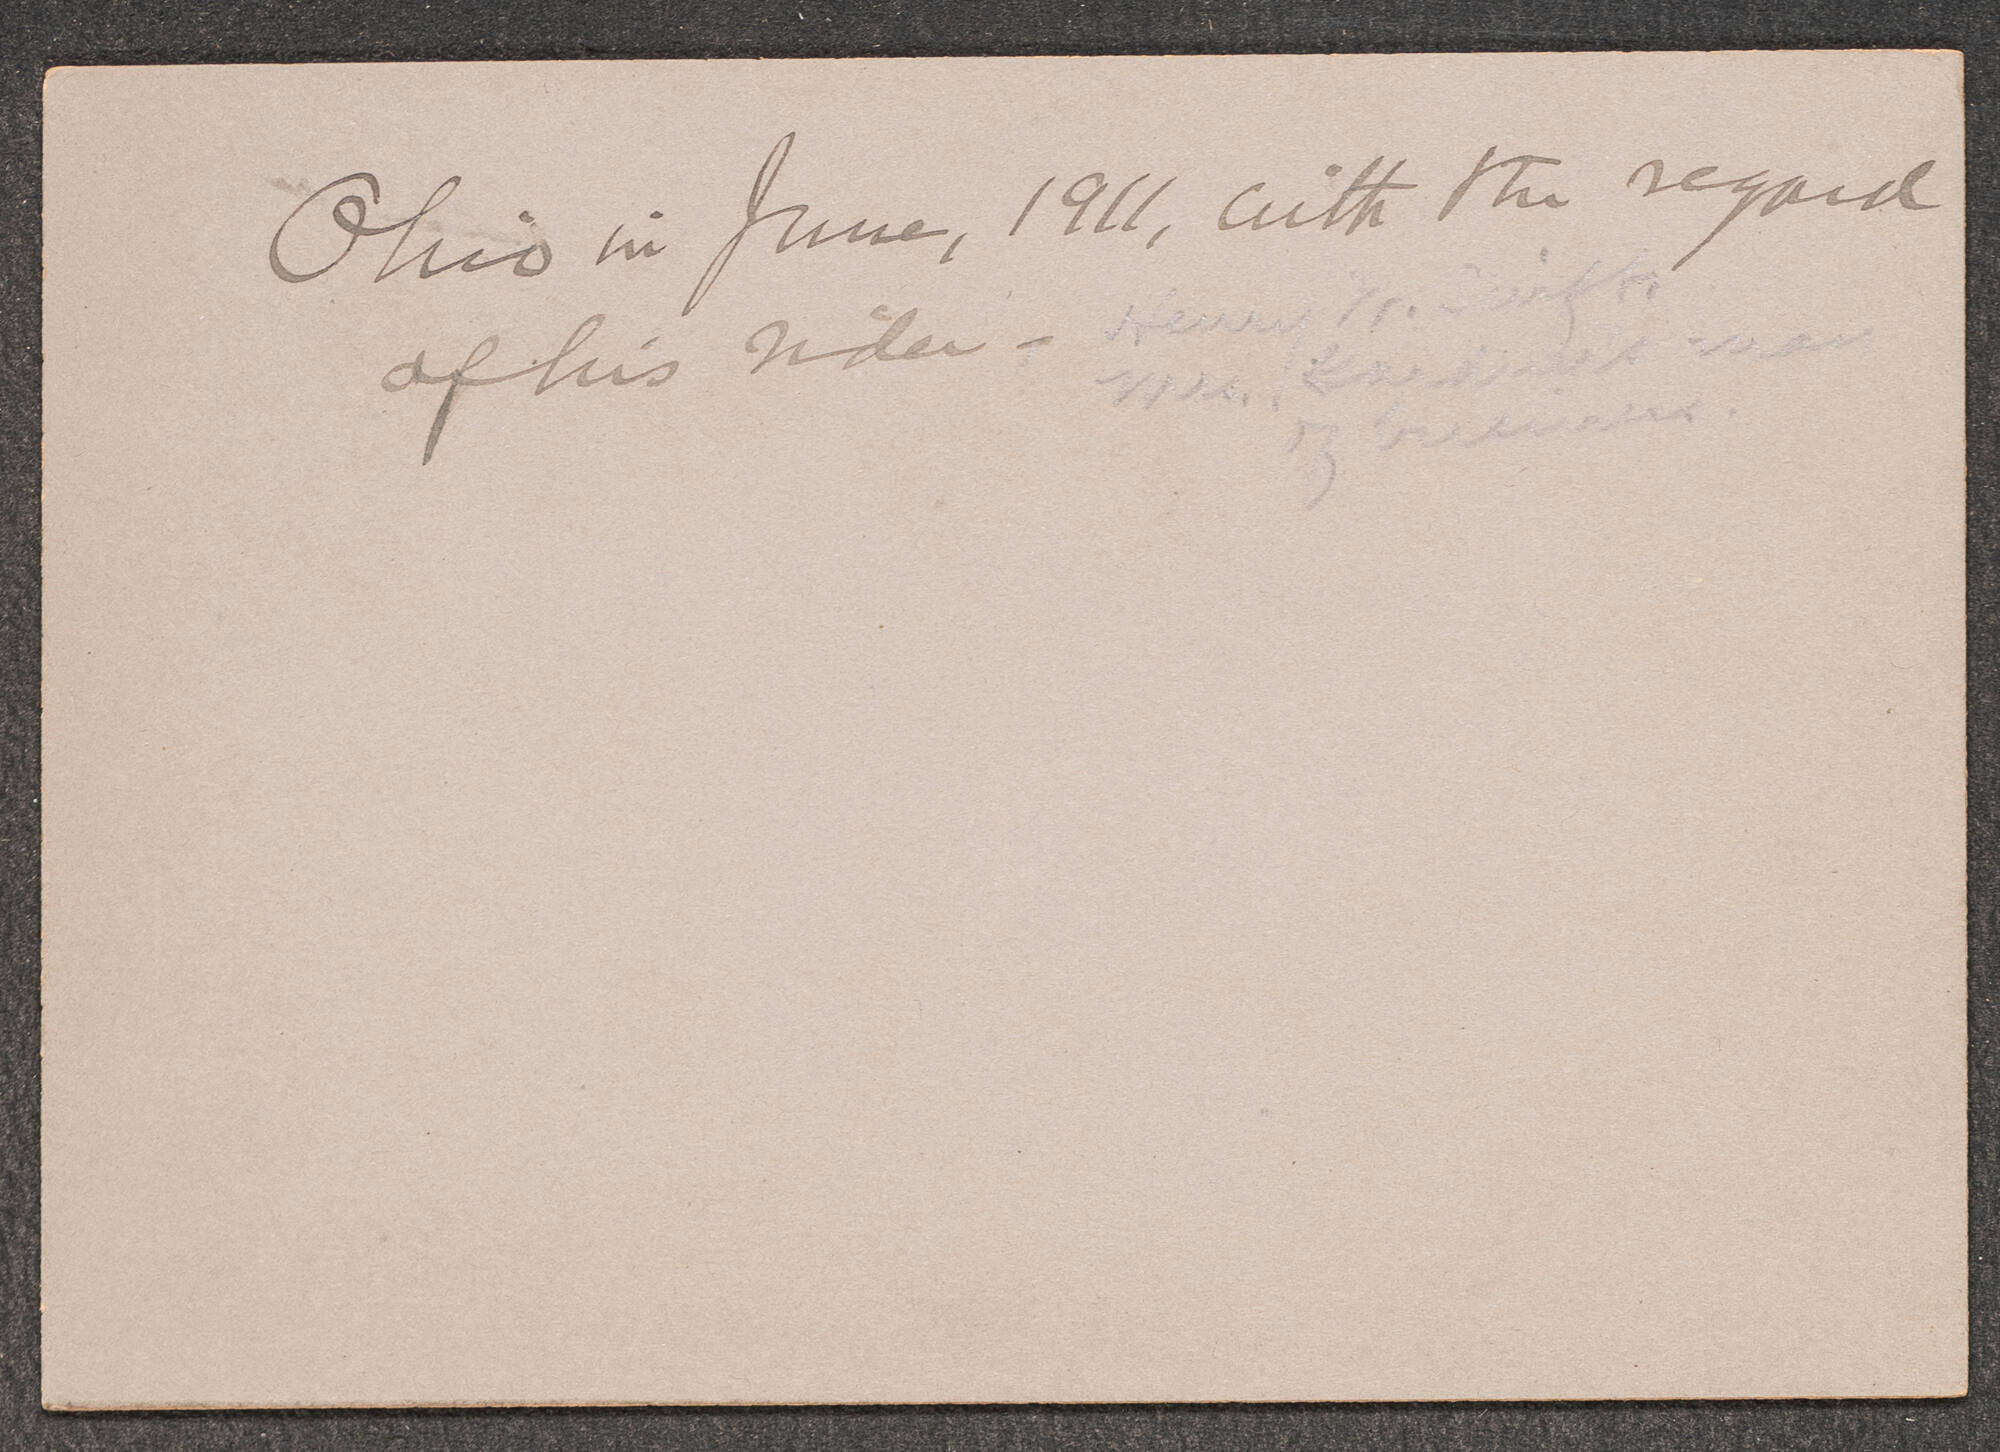 Ohio in June, 1911, with the regard
of his rider -
Henry W. Swift,
Mrs. man
of business.